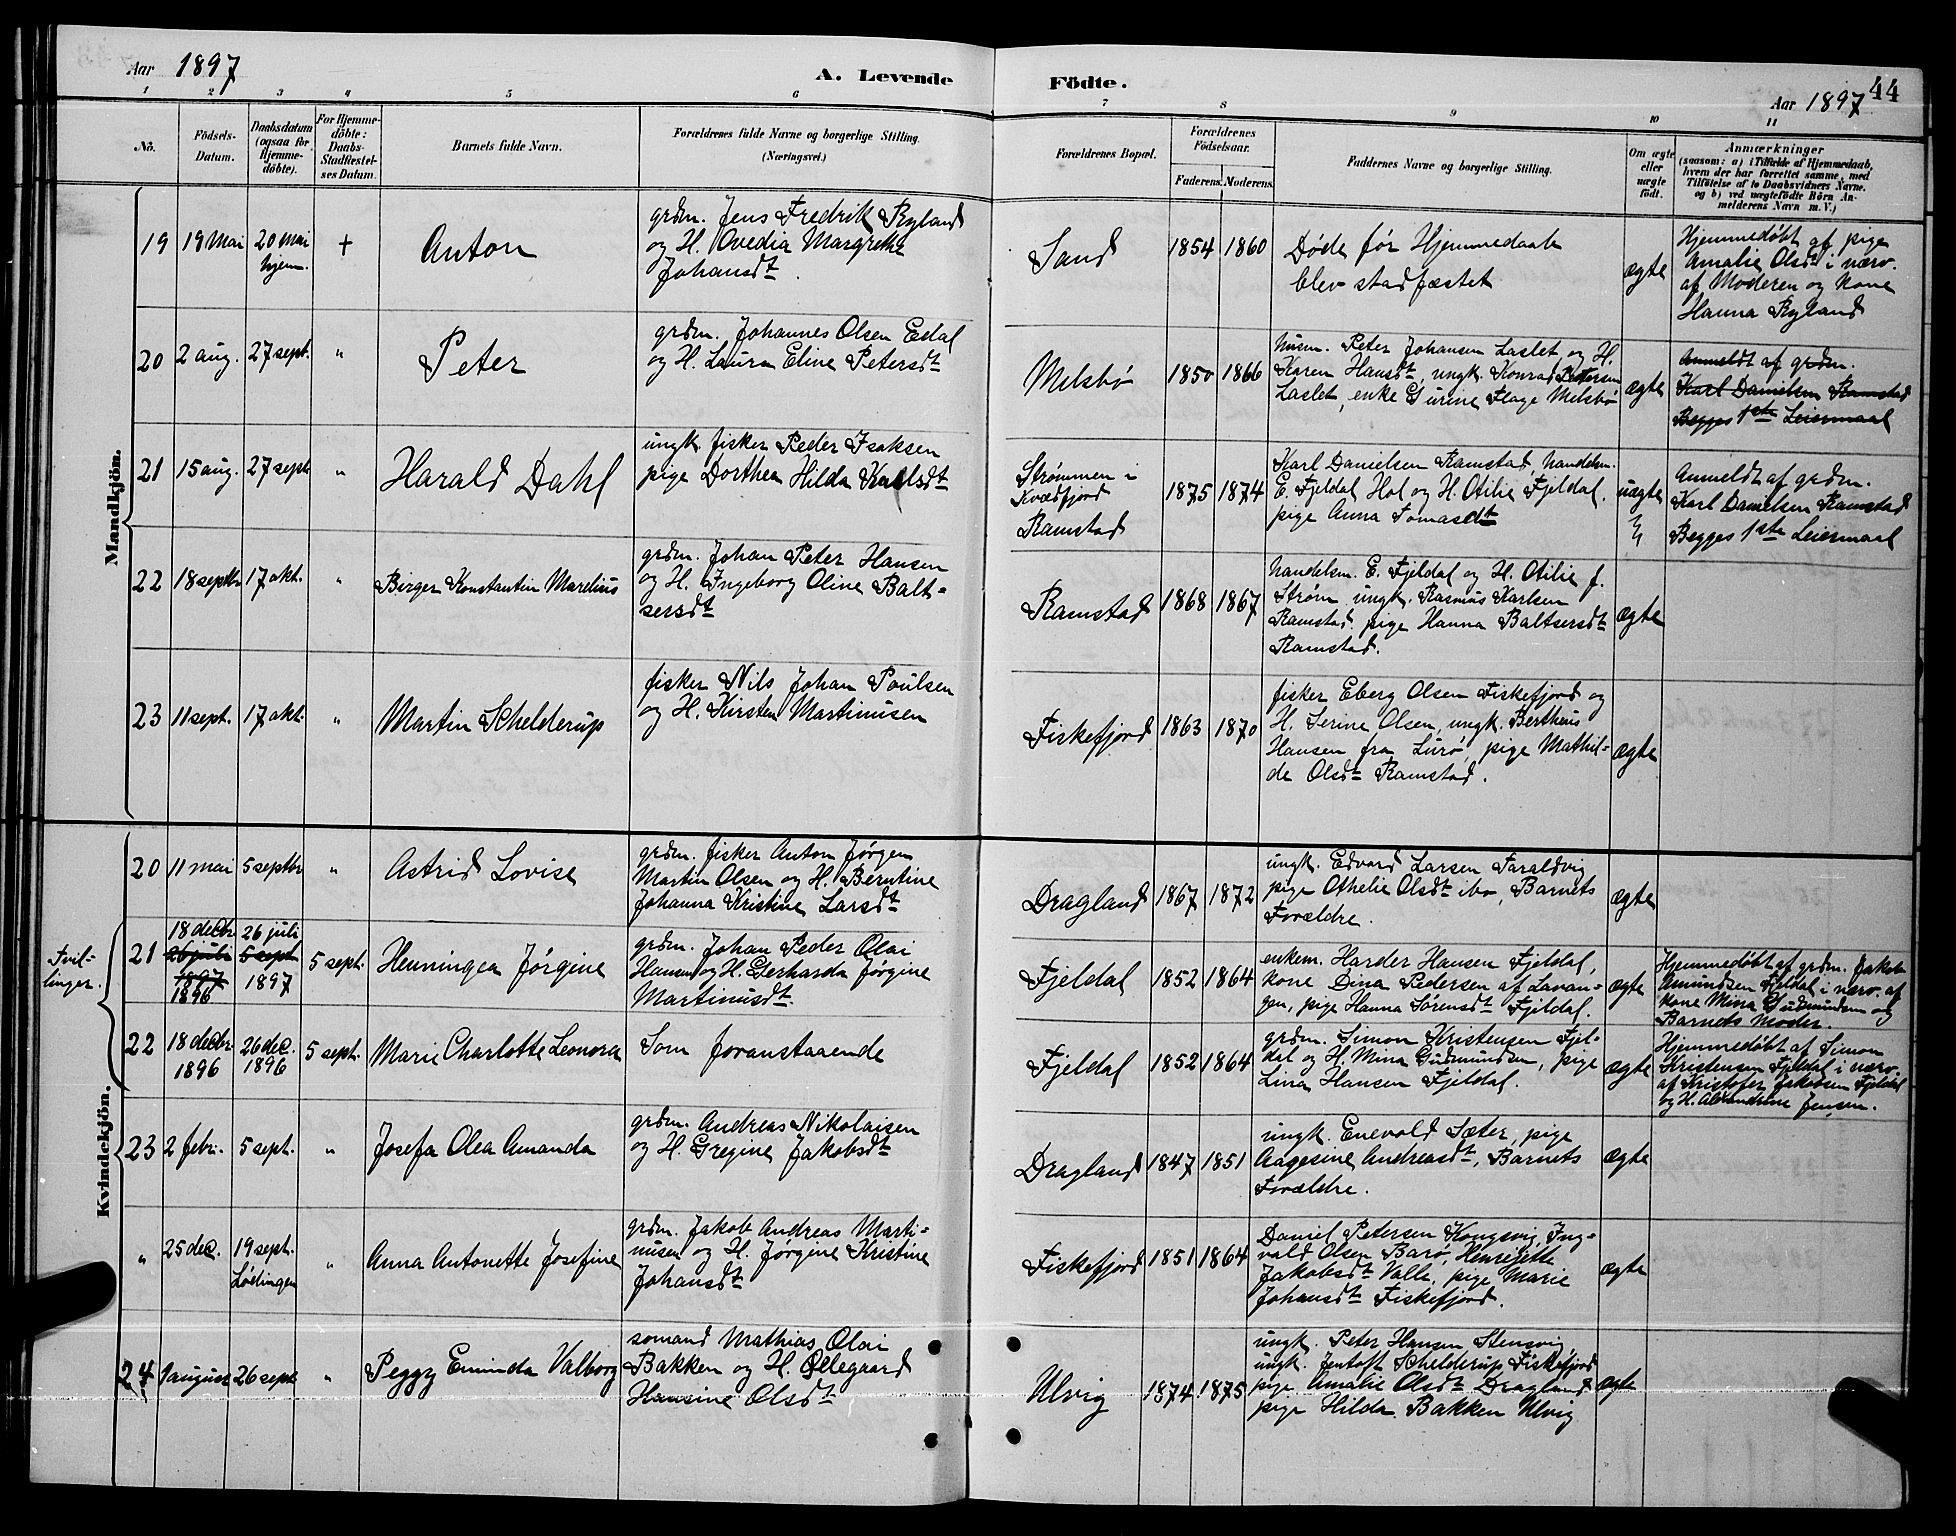 Aar 1897
A. Levende Födte.
Aar 1897
44
1 2 3 4 5 6 7 8 9 10 11
No.
Födsels-
Datum.
Daabsdatum
(ogsaa for
Hjemme-
döbte).
For Hjemme-
döbte:
Daabs-
Stadfæstel-
ses Datum.
Barnets fulde Navn.
Forældrenes fulde Navne og borgerlige Stilling.
(Næringsvei.)
Forældrenes Bopæl.
Forældrenes
Födselsaar.
Faderens. Moderens.
Faddernes Navne og borgerlige Stilling.
Om ægte
eller
uægte
födt.
Anmærkninger
(saasom: a) i Tilfælde af Hjemmedaab,
hvem der har forrettet samme, med
Tilföielse af to Daabsvidners Navne.
og b) ved uægtefödte Börn An-
melderens Navn m. V.)
Mandkjön.
19 19 Mai 20 Mai
hjem.
+
Anton
grdm. Jens Fredrik Ryland
og H. Ovedia Margrethe
Johansdt.
Sand
1854 1860
Døde før Hjemmedaab
blev stadfæstet
ægte
Hjemmedøbt af pige
Amalie Olsdt i nærv.
af Moderen og kone
Hanna Ryland
20 2 aug. 27 sept. "
Peter
grdm. Johannes Olsen Edal
og H. Laura Eline Petersdt
Melsbö
1850 1866
husm. Peter Johansen Laslet og H.
Karen Hansdt, ungk. Konrad Petersen
Laslet, enke Gurine Flage Melsbö
ægte
Anmeldt af grdm.
Karl Danielsen Ramstad
Begges 1ste Leiermaal
21 15 aug. 27 sept "
Harald Dahl
ungk. fisker Peder Isaksen
pige Dorthea Hilda Karlsdt
Strømmen i
Kvædfjord
Ramstad
1875 1874
Karl Danielsen Ramstad, handelsm.
E. Fjeldal Hol og H. Otilie Fjeldal.
pige Anna Tomasdt
uægte
Anmeldt af grdm.
Karl Danielsen Ramstad
Begges 1ste Leiermaal
22 18 septbr 17 okt. "
Birger Konstantin Marelius
grdm. Johan Peter Hansen
og H. Ingeborg Oline Balt-
sersdt
Ramstad
1868 1867
handelsm. E. Fjeldal og H. Otilie f.
Strøm, ungk. Rasmus Karlsen
Ramstad. pige Hanna Baltsersdt
Ramstad.
ægte
23 11 sept. 17 okt. "
Martin Schelderup
fisker Nils Johan Poulsen
og H. Kirsten Martinusen
Fiskefjord
1863 1870
fisker Eberg Olsen Fiskefjord og
H. Serine Olsen, ungk. Bertheus
Hansen fra Lurö, pige Mathil-
de Olsdt Ramstad.
ægte
Kvindekjön.
20 11 mai 5 septbr "
Astrid Lovise
grdm. fisker Anton Jørgen
Martin Olsen og H. Berntine
Johanna Kristine Larsdt
Dragland
1867 1872
ungk. Edvard Larsen Taraldvig
pige Othelie Olsdt ibd, Barnets
Forældre.
ægte
Tvil-
linger.
21
18 decbr
26 juli
1897
1896
26 juli
5 sept
1897
5 sept.
Henningea Jørgine
grdm. Johan Peder Olai
Hansen og H. Gerharda Jørgine
Martinusdt
Fjeldal
1852 1864
enkem. Harder Hansen Fjeldal,
kone Dina Pedersen af Lavan-
gen, pige Hanna Sørensdt Fjeldal.
ægte
Hjemmedøbt af grdm. Jakob
Amundsen Fjeldal i nærv. af
kone Mina Gudmundsen og
Barnets Moder.
22 18 decbr
1896
26 dec.
1896
5 sept.
Marie Charlotte Leonora
Som foranstaaende
Fjeldal
1852 1864
grdm. Simon Kristensen Fjel-
dal og H. Mina Gudmundsen, pige
Lina Hansen Fjeldal.
ægte
Hjemmedøbt af Simon
Kristensen Fjeldal i nærv.
af Kristofer Jakobsen Fjeldal
og H. Alexandrine Jensen.
23 2 febr. 5 sept. "
Josefa Olea Amanda
grdm. Andreas Nikolaisen
og H. Gregine Jakobsdt
Dragland
1847 1851
ungk. Enevold Sæter, pige
Aagesine Andreasdt, Barnets
Forældre.
ægte
" 25 dec. 19 sept.
Lödingen
"
Anna Antonette Josefine
grdm. Jakob Andreas Marti-
nusen og H. Jørgine Kristine
Johansdt
Fiskefjord
1851 1864
Daniel Petersen Kongsvig, Ing-
vald Olsen Barö, Henrijette
Jakobsdt Valle, pige Marie
Johansdt Fiskefjord.
ægte
24 9 august 26 sept "
Peggy Eminda Valborg
sømand Mathias Olai
Bakken og H. Ollegaard
Hansine Olsdt
Ulvig
1874 1875
ungk. Peter Hansen Stensvig
ungk. Jentoft Schelderup Fiskefjord
pige Amalie Olsdt Dragland
pige Hilda Bakken Ulvig
ægte